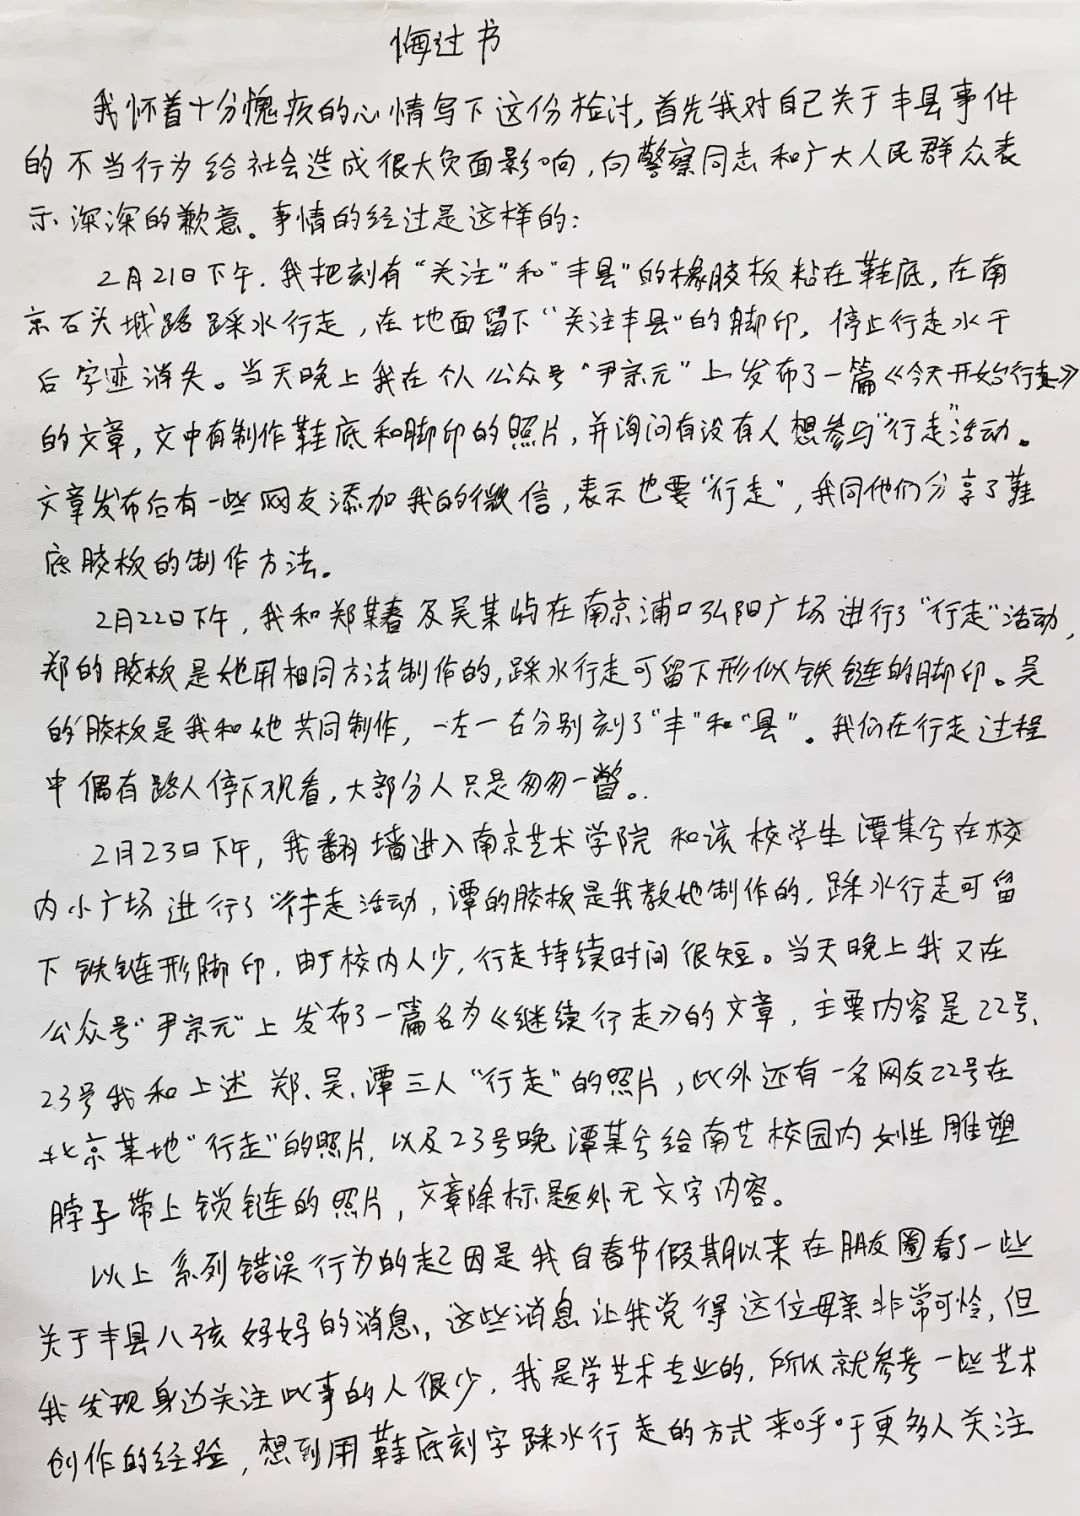 悔过书
我怀着十分愧疚的心情写下这份检讨,首先我对自己关于丰县事件
的不当行为给社会造成很大负面影响,向警察同志和广大人民群众表
示深深的歉意。事情的经过是这样的:
2月21日下午,我把刻有“关注”和“丰县”的橡胶板粘在鞋底,在南
京石头城路踩水行走,在地面留下“关注丰县”的脚印,停止行走水干
后字迹消失。当天晚上我在个人公众号“尹宗元”上发布了一篇《今天开始行走》
的文章,文中有制作鞋底和脚印的照片,并询问有没有人想参与“行走”活动。
文章发布后有一些网友添加我的微信,表示也要“行走”,我同他们分享了鞋
底胶板的制作方法。
2月22日下午,我和郑某春及吴某屿在南京浦口弘阳广场进行了“行走”活动,
郑的胶板是她用相同方法制作的,踩水行走可留下形似铁链的脚印。吴
的胶板是我和她共同制作,一左一右分别刻了“丰”和“县”。我们在行走过程
中偶有路人停下观看,大部分人只是匆匆一瞥。
2月23日下午,我翻墙进入南京艺术学院和该校学生谭某兮在校
内小广场进行了“行走活动,谭的胶板是我教她制作的,踩水行走可留
下铁链形脚印,由于校内人少,行走持续时间很短。当天晚上我又在
公众号“尹宗元”上发布了一篇名为《继续行走》的文章,主要内容是22号、
23号我和上述郑、吴、谭三人“行走”的照片,此外还有一名网友22号在
北京某地“行走”的照片,以及23号晚谭某兮给南艺校园内女性雕塑
脖子带上锁链的照片,文章除标题外无文字内容。
以上系列错误行为的起因是我自春节假期以来在朋友圈看了一些
关于丰县八孩妈妈的消息,这些消息让我觉得这位母亲非常可怜,但
我发现身边关注此事的人很少,我是学艺术专业的,所以就参考一些艺术
创作的经验,想到用鞋底刻字踩水行走的方式来呼吁更多人关注